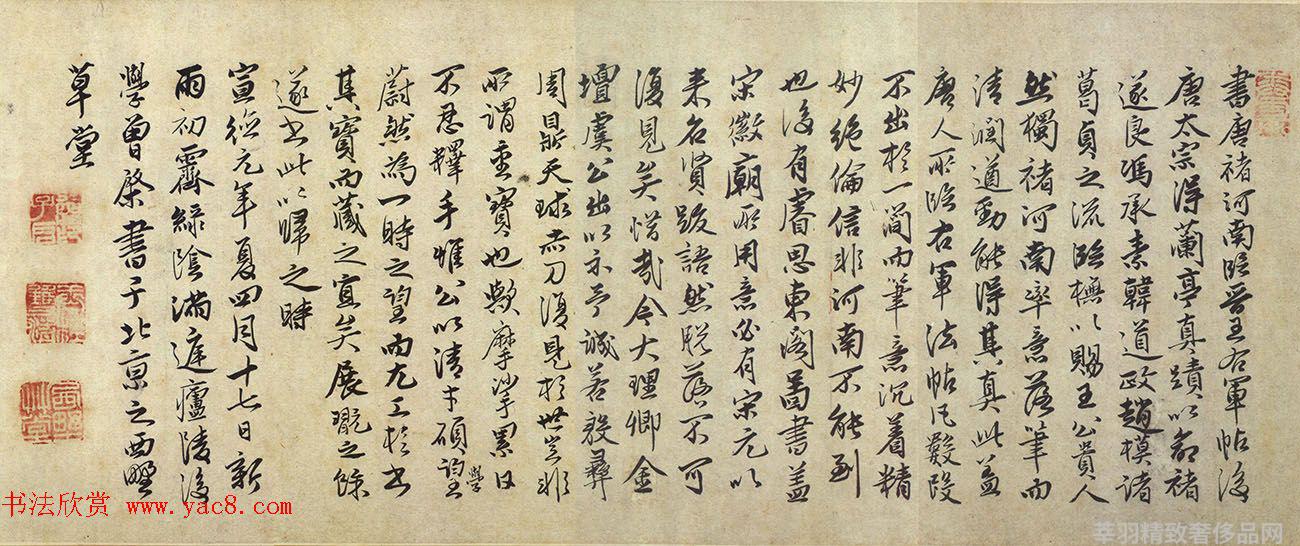 書唐褚河南臨晉王右軍帖後
唐太宗得蘭亭真蹟以命褚
遂良馮承素韓道政趙模諸
葛貞之流臨橅以賜王公貴人
然獨褚河南率意落筆而
清潤遒勁能得其真此蓋
唐人所臨右軍法帖凡數段
不出於一簡而筆意沉着精
妙絕倫信非河南不能到
也後有睿思東閣畫書蓋
宋徽廟所用意必有宋元以
來名賢跋語然脫落不可
復見矣惜哉今大理卿金
壇虞公出以示予誠若殷彝
周鼎天球赤刀復見於世豈非
所謂重寶也歟摩挲累日
不忍釋手惟公以清才碩學望
蔚然為一時之望而尤工於書
其寶而藏之宜矣展玩之餘
遂書此以歸之時
宣德元年夏四月十七日新
雨初霽綠陰滿庭廬陵後
學曾棨書于北京之西墅
草堂
书法欣赏 www.yac8.com
莘羽精致奢侈品网